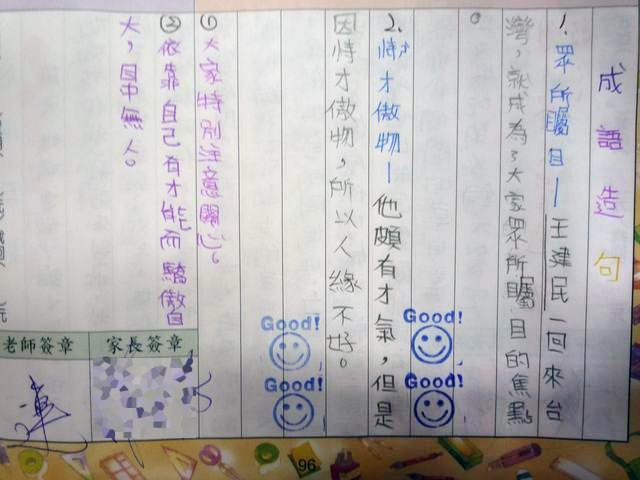 成語造句
1.眾所矚目—王建民一回來台
灣，就成為了大家眾所矚目的焦點
。
2.恃才傲物—他頗有才氣，但是
因恃才傲物，所以人緣不好。
Good!
Good!
Good!
Good!
(1)大家特別注意關心。
(2)依靠自己有才能而驕傲自
大，目中無人。
家長簽章
老師簽章
96